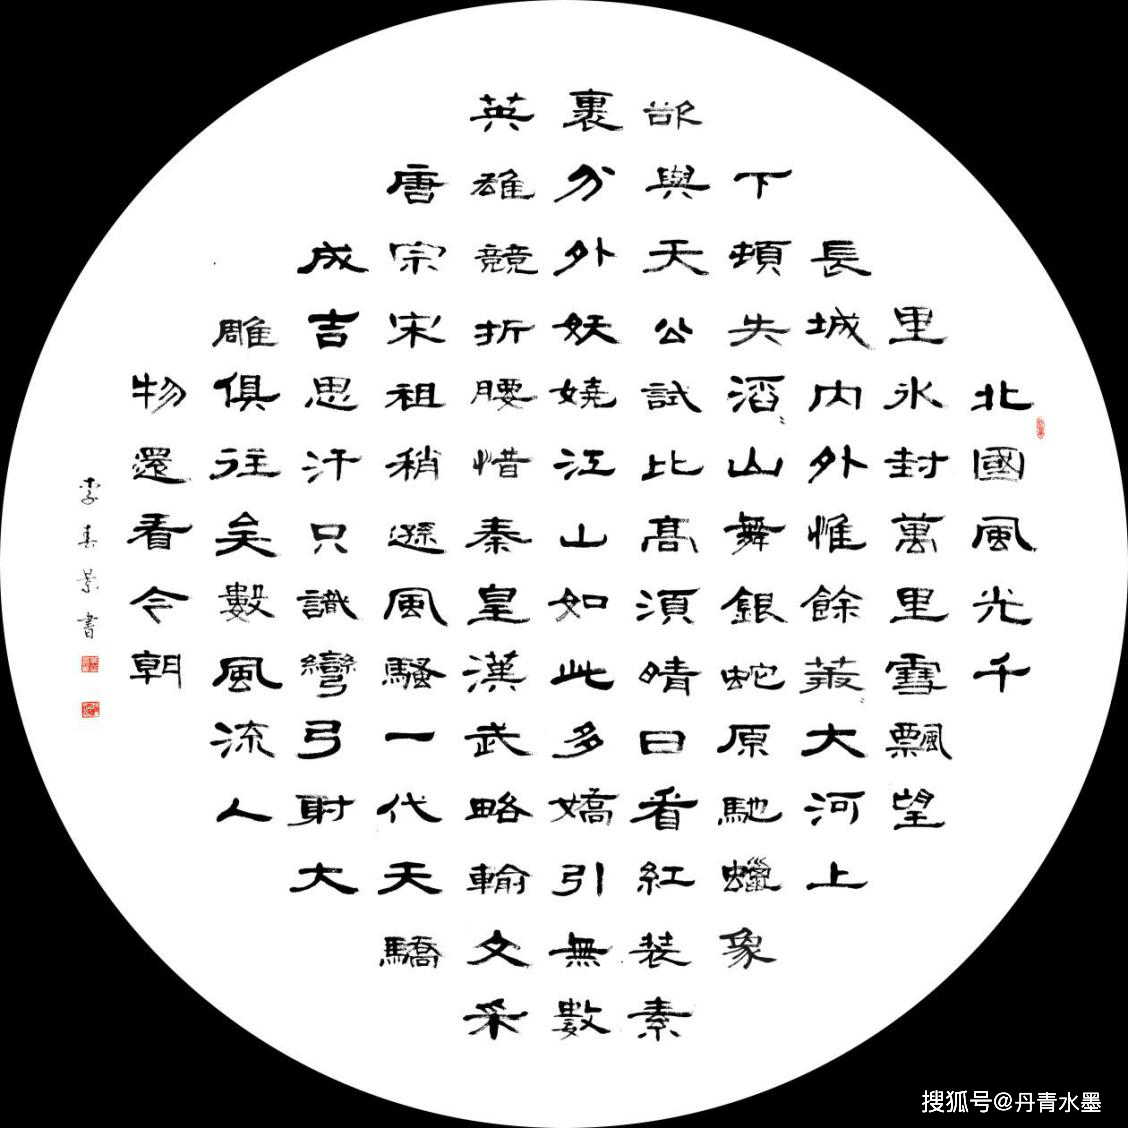 北國風光千
里氷封萬里雪飄望
長城內外惟餘莽〻大河上
下頓失滔〻山舞銀蛇原馳蠟象
欲與天公試比高須晴日看紅装素
裹分外妖嬈江山如此多嬌引無數
英雄競折腰惜秦皇漢武略輸文采
唐宗宋祖稍遜風騷一代天驕
成吉思汗只識彎弓射大
雕俱往矣數風流人
物還看今朝
李景書
搜狐号@丹青水墨